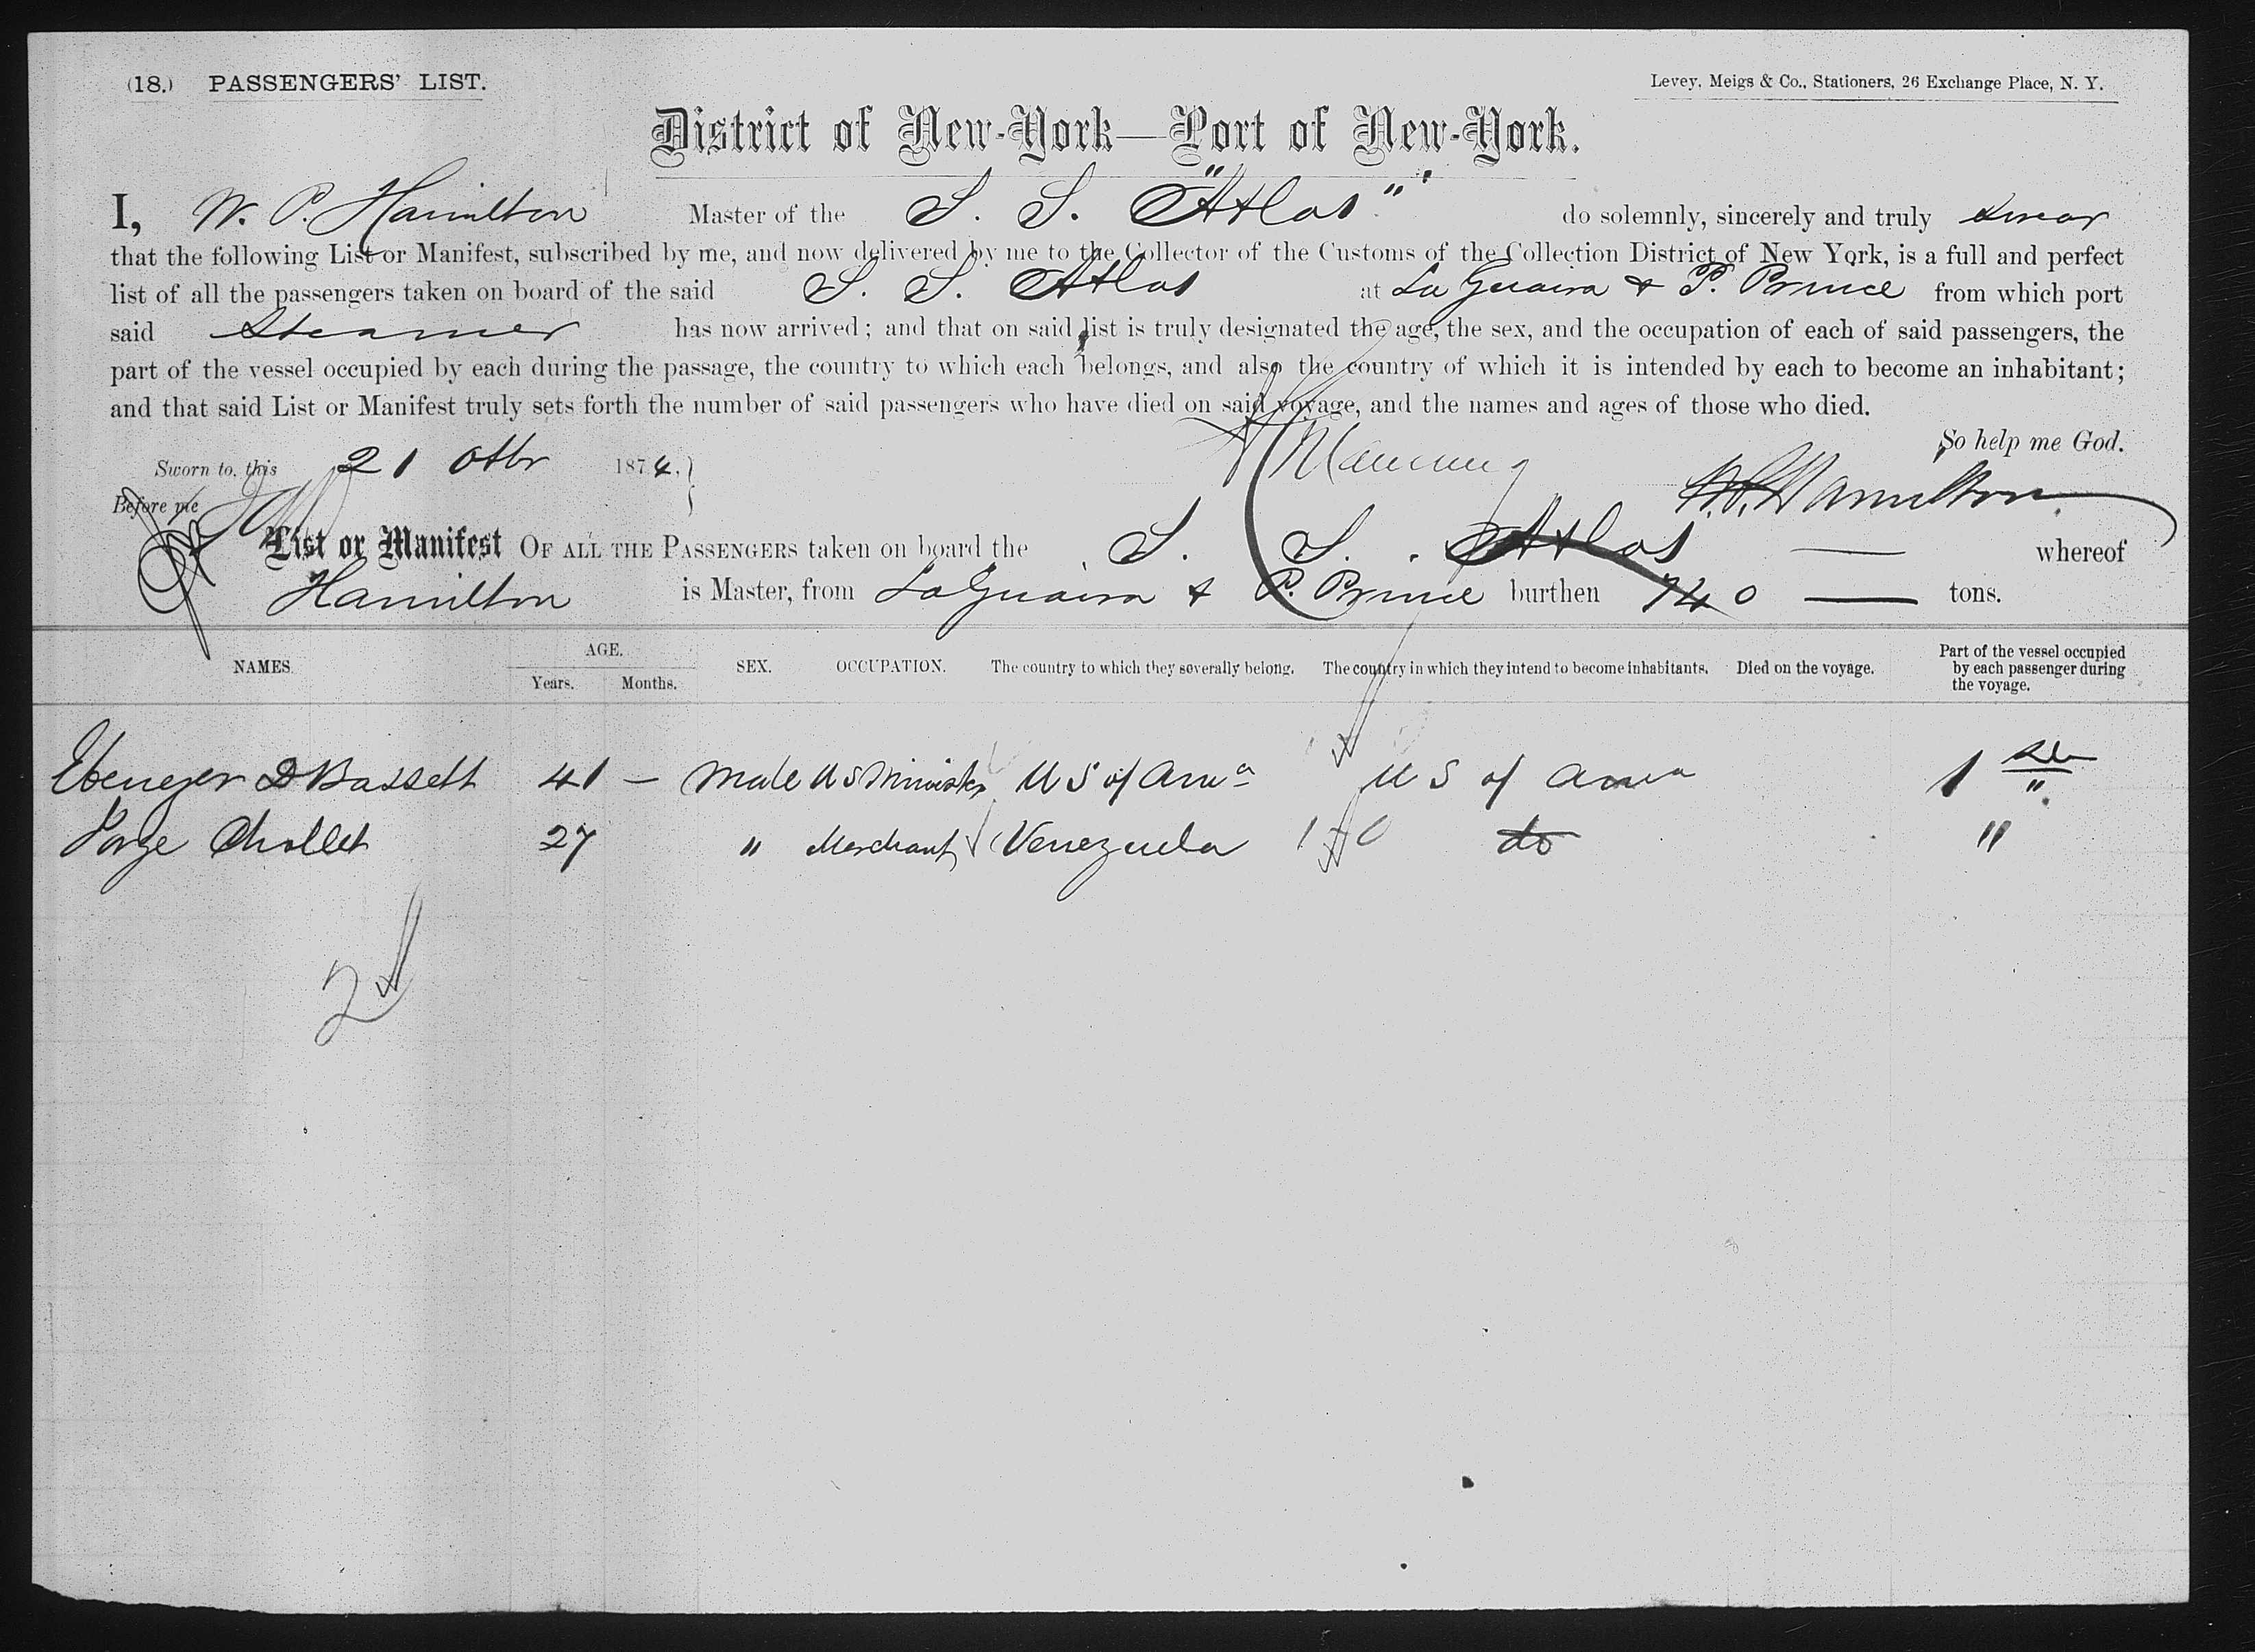 (18.) PASSENGERS' LIST.
Levey, Meigs & Co., Stationers, 26 Exchange Place, N. Y.
District of New-York—Port of New-York.
I, W. P. Hamilton Master of the S. S. "Atlas" do solemnly, sincerely and truly swear
that the following List or Manifest, subscribed by me, and now delivered by me to the Collector of the Customs of the Collection District of New York, is a full and perfect
list of all the passengers taken on board of the said S. S. Atlas at La Guaira & P. Prince from which port
said Steamer has now arrived; and that on said list is truly designated the age, the sex, and the occupation of each of said passengers, the
part of the vessel occupied by each during the passage, the country to which each belongs, and also the country of which it is intended by each to become an inhabitant;
and that said List or Manifest truly sets forth the number of said passengers who have died on said voyage, and the names and ages of those who died.
So help me God.
Sworn to, this 21 Otbr 1874. Manning W. P. Hamilton
Before me
List or Manifest OF ALL THE PASSENGERS taken on board the S. S. Atlas — whereof
Hamilton is Master, from La Guaira & P. Prince burthen 740 — tons.
NAMES. AGE. Years. Months. SEX. OCCUPATION. The country to which they severally belong. The country in which they intend to become inhabitants. Died on the voyage. Part of the vessel occupied by each passenger during the voyage.
Ebenezer D Bassett 41 — Male U S Minister U S of Ama U S of Ama 1
Jorge Chollet 27 " Merchant Venezuela do "
2